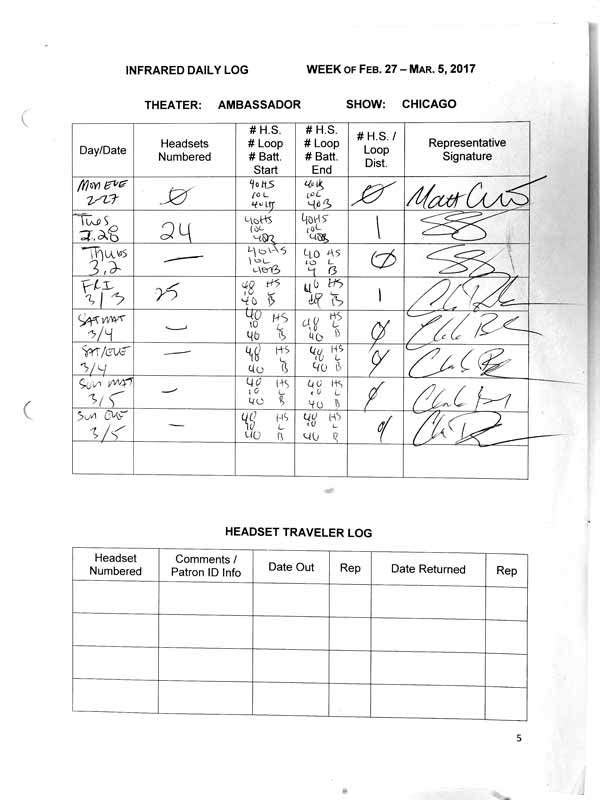 INFRARED DAILY LOG WEEK OF FEB. 27 – MAR. 5, 2017
THEATER: AMBASSADOR SHOW: CHICAGO
Day/Date Headsets Numbered # H.S. # Loop # Batt. Start # H.S. # Loop # Batt. End # H.S. / Loop Dist. Representative Signature
MON EVE 2-27 Ø 40HS 10L 40B Ø
Tues 2.28 24 40HS 10L 40B 40HS 10L 40B 1
Thurs 3.2 — 40HS 10L 40B 40 HS 10 L 4 B Ø
FRI 3/3 25 40 HS 10 L 40 B 40 HS 10 L 40 B 1
SAT MAT 3/4 — 40 HS 10 L 40 B 40 HS 10 L 40 B Ø
SAT/EVE 3/4 — 40 HS L 40 B 40 HS 10 L 40 B Ø
SUN MAT 3/5 — 40 HS 10 L 40 B 40 HS 10 L 40 B Ø
SUN EVE 3/5 — 40 HS L 40 B 40 HS L 40 B Ø
HEADSET TRAVELER LOG
Headset Numbered Comments / Patron ID Info Date Out Rep Date Returned Rep
5